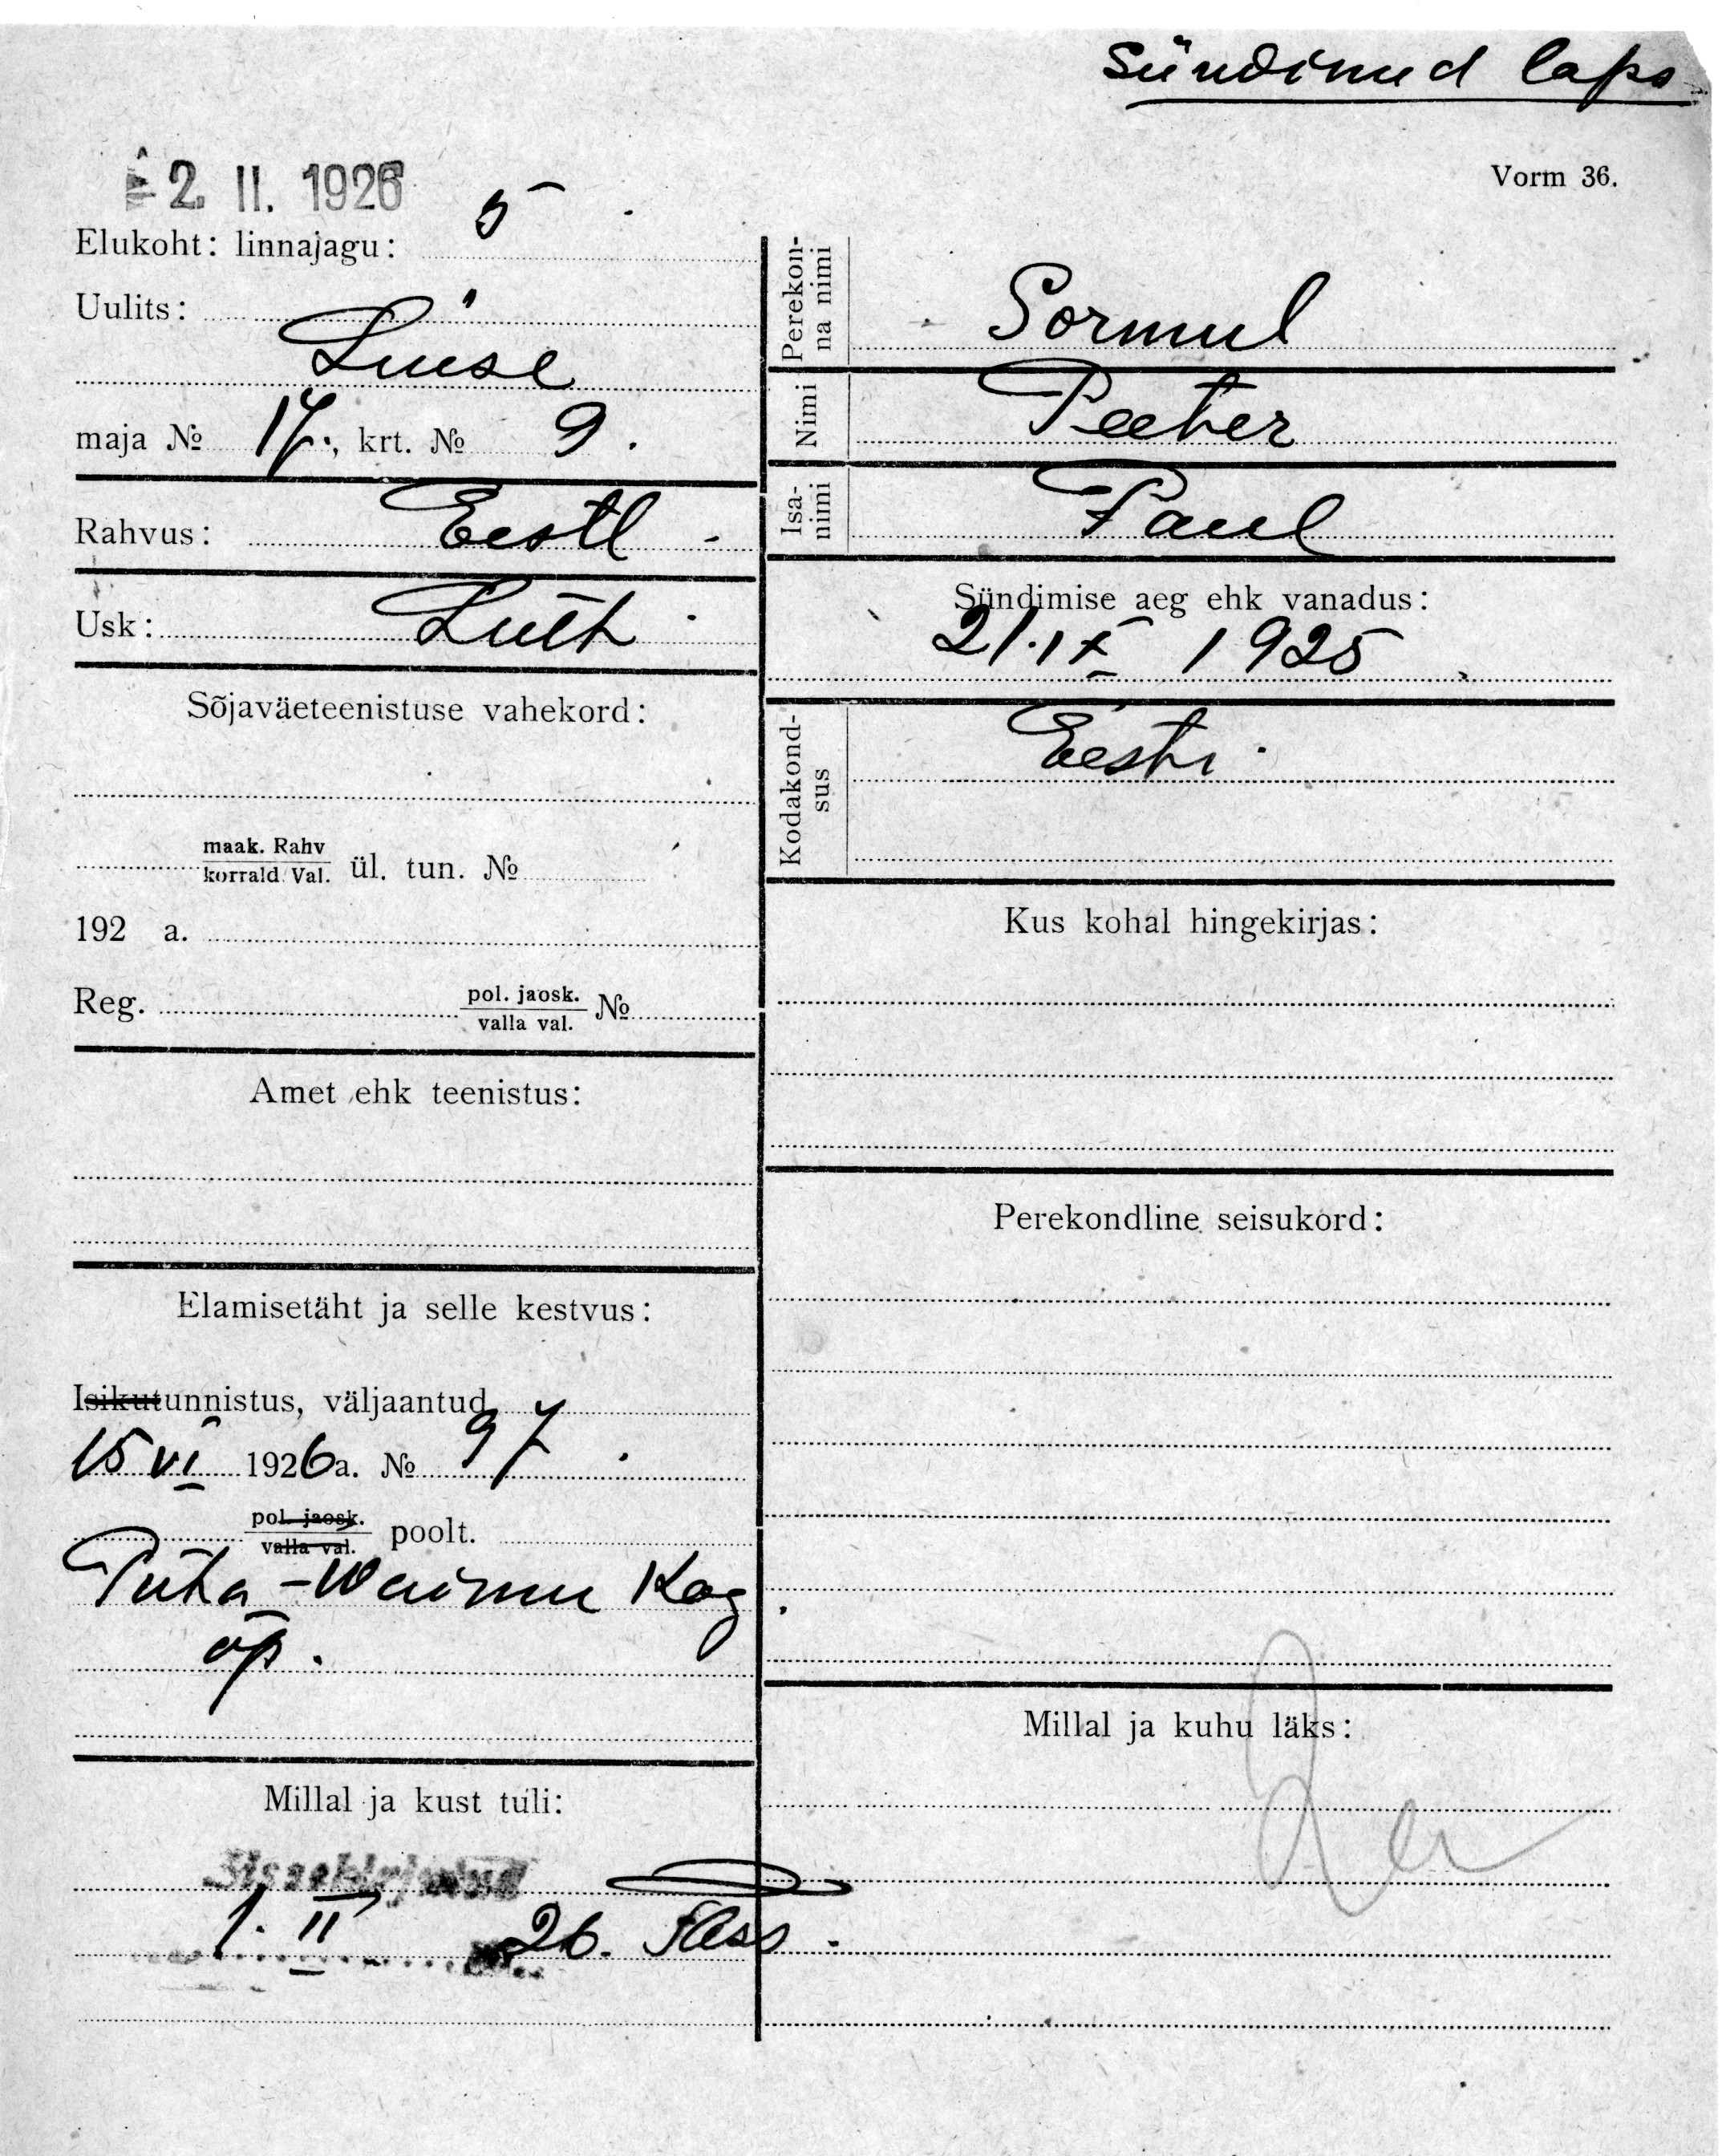 Sündinud laps
2. II. 1926
Vorm 36.
Elukoht: linnajagu: 5
Uulits:
Luise
maja № 17., krt. № 9.
Rahvus: Eestl
Usk: Luth
Sõjaväeteenistuse vahekord:
maak. Rahv
korrald. Val. ül. tun. №
192 a.
Reg. pol. jaosk.
valla val. №
Amet ehk teenistus:
Elamisetäht ja selle kestvus:
Isikutunnistus, väljaantud
15 VI 1926 a. № 97.
pol. jaosk.
valla val. poolt.
Püha-Waimu Kog
õp.
Millal ja kust tuli:
Sissekirjutud
1. II 26.
Perekonna nimi Sormul
Nimi Peeter
Isanimi Paul
Sündimise aeg ehk vanadus:
21. IX 1925
Kodakondsus Eesti
Kus kohal hingekirjas:
Perekondline seisukord:
Millal ja kuhu läks: